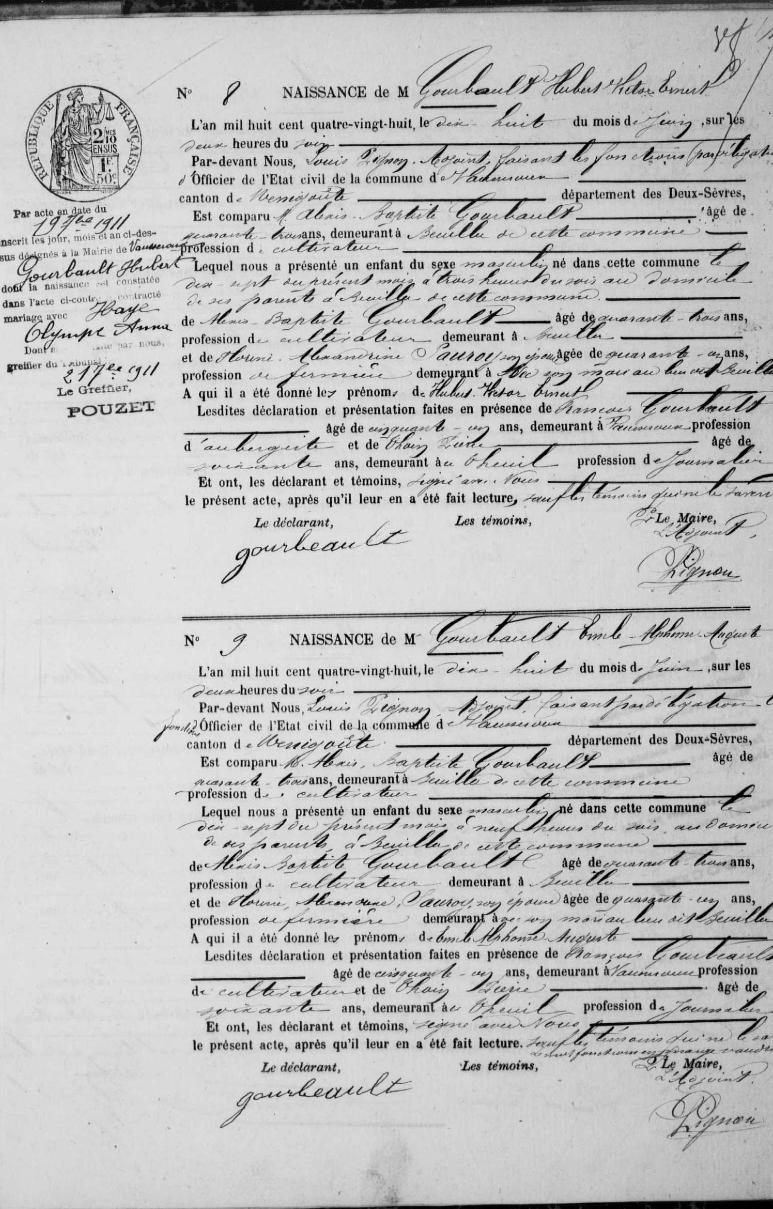 Nº 8 NAISSANCE de M Gourbault Hubert Victor Ernest
L'an mil huit cent quatre-vingt-huit, le dix-huit du mois de Juin, sur les
deux heures du soir
Par-devant Nous, Louis Pignon Adjoint, faisant les fonctions par
d'Officier de l'Etat civil de la commune d
canton de Menigoûte département des Deux-Sèvres,
Est comparu M. Alexis Baptiste Gourbault âgé de
quarante-trois ans, demeurant à Beuille de cette commune
profession de cultivateur
Lequel nous a présenté un enfant du sexe masculin né dans cette commune le
dix-sept du présent mois à trois heures du soir au domicile
de ses parents à Beuille de cette commune
de Alexis Baptiste Gourbault âgé de quarante-trois ans,
profession de cultivateur demeurant à Beuille
et de Alexandrine son épouse âgée de quarante-un ans,
profession de fermière demeurant avec son mari au lieu dit Beuille
A qui il a été donné les prénoms de Hubert Victor Ernest
Lesdites déclaration et présentation faites en présence de François Gourbault
âgé de cinquante-un ans, demeurant à profession
d'aubergiste et de Thoin Pierre âgé de
soixante ans, demeurant au Theuil profession de Journalier
Et ont, les déclarant et témoins, signé avec Nous
le présent acte, après qu'il leur en a été fait lecture, sauf les témoins qui ne le savent
Le déclarant, Les témoins, Pr Le Maire,
L'Adjoint,
gourbeault
Pignon
RÉPUBLIQUE FRANÇAISE
2/10 EN SUS
1F. 50c
Par acte en date du
19 1911
inscrit les jour, mois et an ci-des-
sus désignés à la Mairie de
Gourbault Hubert
dont la naissance est constatée
dans l'acte ci-contre, a contracté
mariage avec Haye
Olympe Anna
par nous,
greffier du
21 1911
Le Greffier,
POUZET
Nº 9 NAISSANCE de M Gourbault Emile Alphonse Auguste
L'an mil huit cent quatre-vingt-huit, le dix-huit du mois de Juin, sur les
deux heures du soir
Par-devant Nous, Louis Pignon Adjoint, faisant par délégation
fonctions d'Officier de l'Etat civil de la commune d
canton de Menigoûte département des Deux-Sèvres,
Est comparu M. Alexis Baptiste Gourbault âgé de
quarante-trois ans, demeurant à Beuille de cette commune
profession de cultivateur
Lequel nous a présenté un enfant du sexe masculin né dans cette commune le
dix-sept du présent mois à neuf heures du soir, au
de ses parents, à Beuille de cette commune
de Alexis Baptiste Gourbault âgé de quarante-trois ans,
profession de cultivateur demeurant à Beuille
et de son épouse âgée de quarante-un ans,
profession de fermière demeurant avec son mari au lieu dit Beuille
A qui il a été donné les prénoms de Emile Alphonse Auguste
Lesdites déclaration et présentation faites en présence de François Gourbeault
âgé de cinquante-un ans, demeurant à profession
de cultivateur et de Thoin Pierre âgé de
soixante ans, demeurant au Theuil profession de Journalier
Et ont, les déclarant et témoins, signé avec Nous
le présent acte, après qu'il leur en a été fait lecture. sauf les témoins qui ne le
Le déclarant, Les témoins, Pr Le Maire,
L'Adjoint.
gourbeault
Pignon